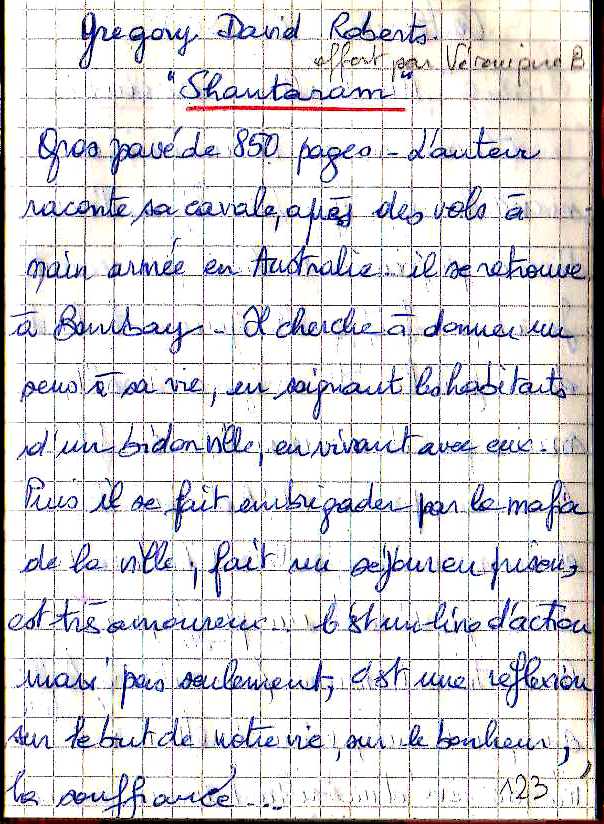 Gregory David Roberts
offert par Véronique B
"Shantaram"
Gros pavé de 850 pages - L'auteur
raconte sa cavale, après des vols à
main armée en Australie. il se retrouve
à Bombay - Il cherche à donner un
sens à sa vie, en soignant les habitants
d'un bidonville, en vivant avec eux.
Puis il se fait embrigader par la mafia
de la ville, fait un séjour en prison,
est très amoureux... C'est un livre d'action
mais pas seulement, c'est une réflexion
sur le but de notre vie, sur le bonheur,
la souffrance...
123